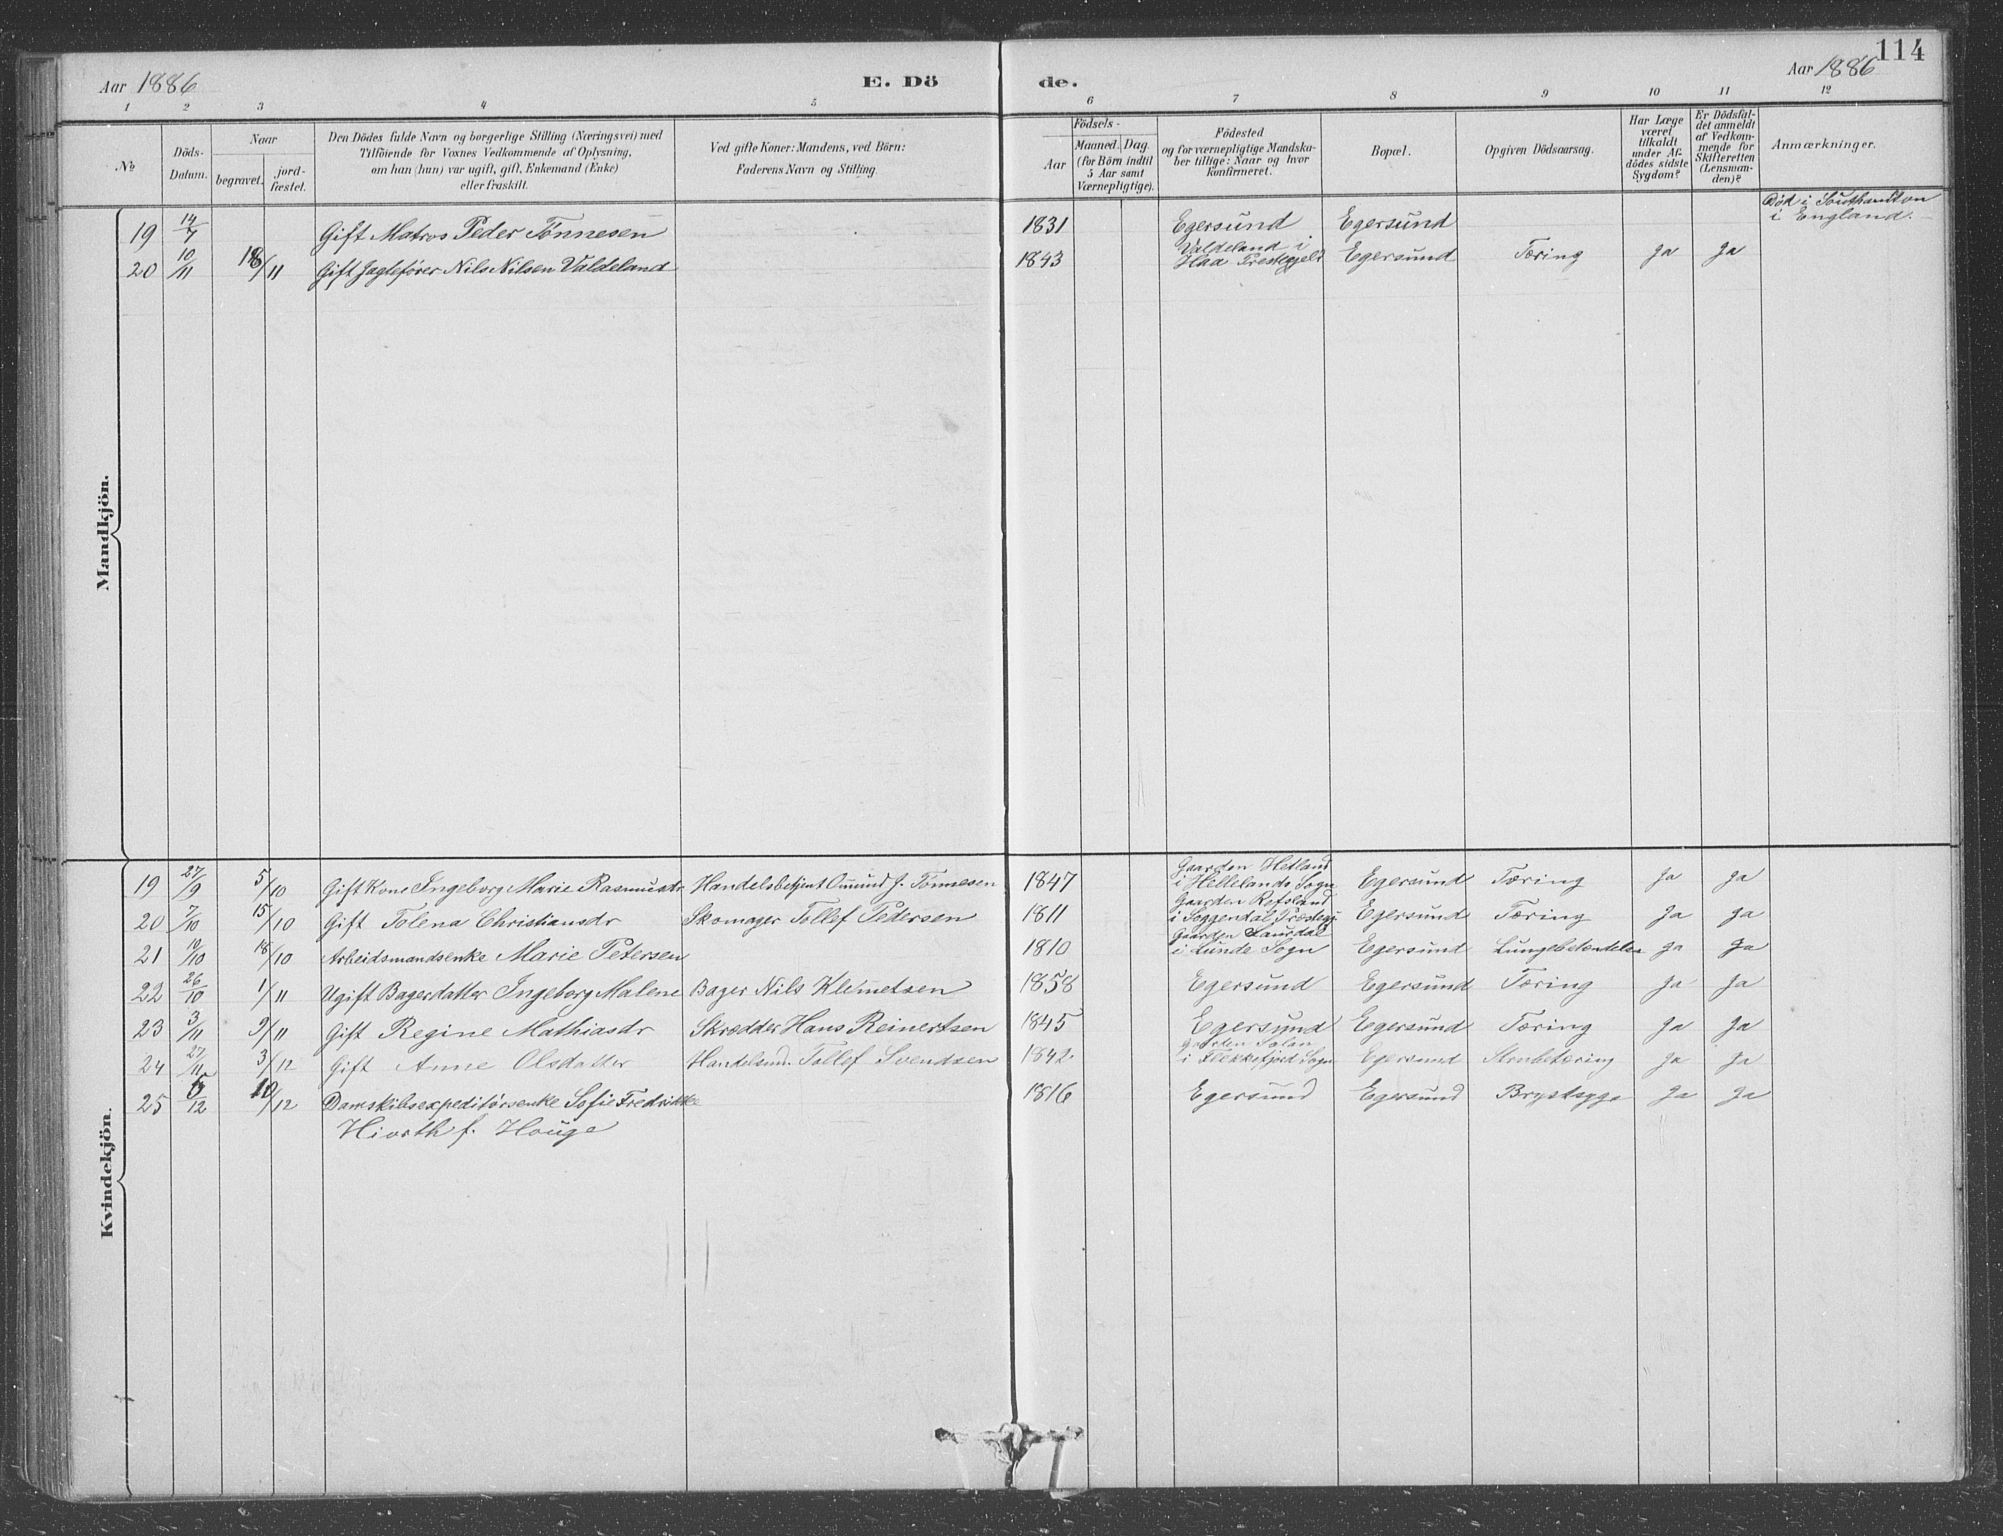 114
Aar 1886 E. Dö de. Aar 1886
1 2 3 4 5 6 7 8 9 10 11 12
No
Döds-Datum.
Naar
begravet.
jord-fæstet.
Den Dödes fulde Navn og borgerlige Stilling (Næringsvei) med
Tilföiende for Voxnes Vedkommende af Oplysning,
om han (hun) var ugift, gift, Enkemand (Enke)
eller fraskilt.
Ved gifte Koner: Mandens, ved Börn:
Faderens Navn og Stilling.
Födsels-
Aar
Maaned. Dag.
(for Börn indtil
5 Aar samt
Værnepligtige).
Födested
og for værnepligtige Mandska-
ber tillige: Naar og hvor
konfirmeret.
Bopæl.
Opgiven Dödsaarsag.
Har Læge
været
tilkaldt
under Af-
dödes sidste
Sygdom?
Er Dödsfal-
det anmeldt
af Vedkom-
mende for
Skifteretten
(Lensman-
den)?
Anmærkninger.
Mandkjön.
19 14/7 Gift Matros Peder Tönnesen 1831 Egersund Egersund Död i Southamton
i England.
20 10/11 18/11 Gift Jagtefører Nils Nilsen Valdeland 1843 Valdeland i
Haa Prestegjeld Egersund Tæring Ja Ja
Kvindekjön.
19 27/9 5/10 Gift Kone Ingeborg Marie Rasmusdr Handelsbetjent Omund J. Tönnesen 1847 Gaarden Hetland
i Hellelands Sogn Egersund Tæring Ja Ja
20 7/10 15/10 Gift Tolena Christiansdr Skomager Tollef Pedersen 1811 Gaarden Refsland
i Soggendal Prestegj Egersund Tæring Ja Ja
21 10/10 18/10 Arbeidsmandsenke Marie Petersen 1810 Gaarden
i Lunde Sogn Egersund Lungebetændelse Ja Ja
22 26/10 1/11 Ugift Bagerdatter Ingeborg Malene Bager Nils Klemetsen 1858 Egersund Egersund Tæring Ja Ja
23 3/11 9/11 Gift Regine Mathiasdr Skrædder Hans Reinertsen 1845 Egersund Egersund Tæring Ja Ja
24 27/11 3/12 Gift Anne Olsdatter Handelsmd. Tollef Svendsen 1842 Gaarden
i Flekkefjord Sogn Egersund Strubetæring Ja Ja
25 6/12 10/12 Damskibsexpeditörsenke Sofie Fredrikke 1816 Egersund Egersund Brystsyge Ja Ja
Hiorth f. Houge